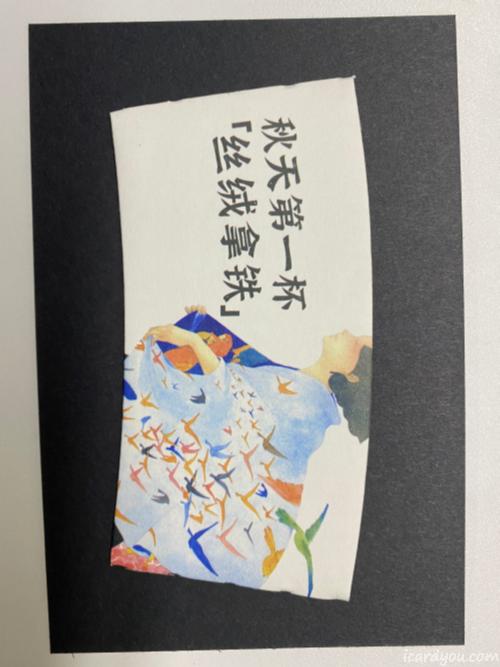 秋天第一杯
「丝绒拿铁」
icardyou.com